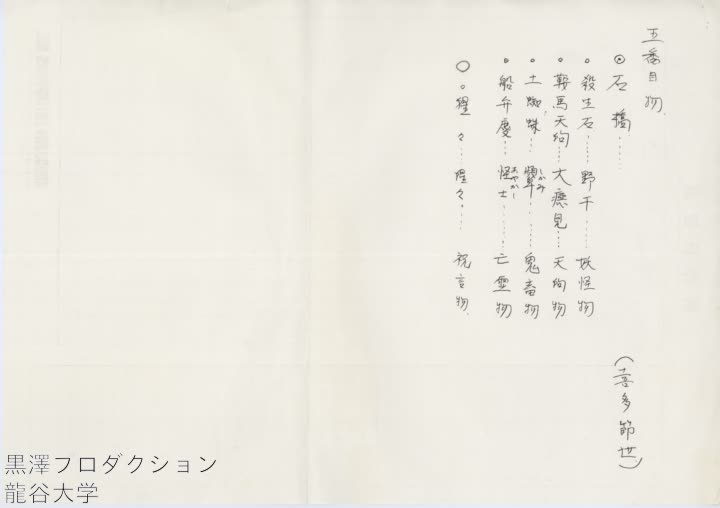 五番目物
◎石橋……
・殺生石……野干……妖怪物
・鞍馬天狗…大癋見…天狗物
・土蜘蛛…顰……鬼畜物
しかみ
・船弁慶…怪士……亡霊物
あやかし
○・猩々…猩々…祝言物
(喜多節世)
黒澤フロダクション
龍谷大学